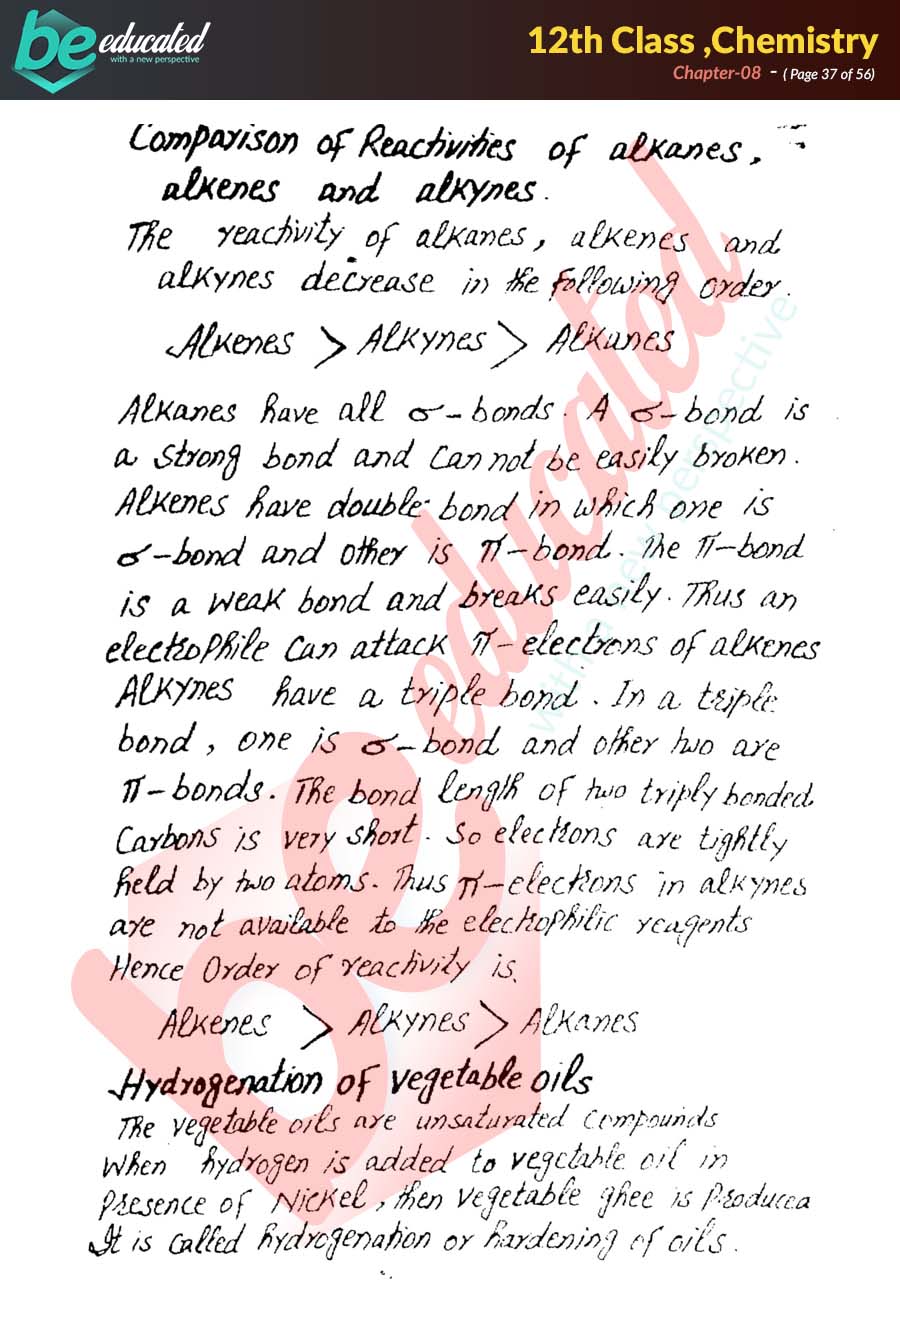 be educated
with a new perspective
12th Class ,Chemistry
Chapter-08 - ( Page 37 of 56)
Comparison of Reactivities of alkanes,
alkenes and alkynes.
The reactivity of alkanes, alkenes and
alkynes decrease in the following order.
Alkenes > Alkynes > Alkanes
Alkanes have all σ-bonds. A σ-bond is
a strong bond and can not be easily broken.
Alkenes have double bond in which one is
σ-bond and other is π-bond. The π-bond
is a weak bond and breaks easily. Thus an
electrophile can attack π-electrons of alkenes
Alkynes have a triple bond. In a triple
bond, one is σ-bond and other two are
π-bonds. The bond length of two triply bonded
Carbons is very short. So electrons are tightly
held by two atoms. Thus π-electrons in alkynes
are not available to the electrophilic reagents
Hence Order of reactivity is.
Alkenes > Alkynes > Alkanes
Hydrogenation of vegetable oils
The vegetable oils are unsaturated compounds
When hydrogen is added to vegetable oil in
presence of Nickel, then vegetable ghee is produced
It is called hydrogenation or hardening of oils.
be educated
with a new perspective